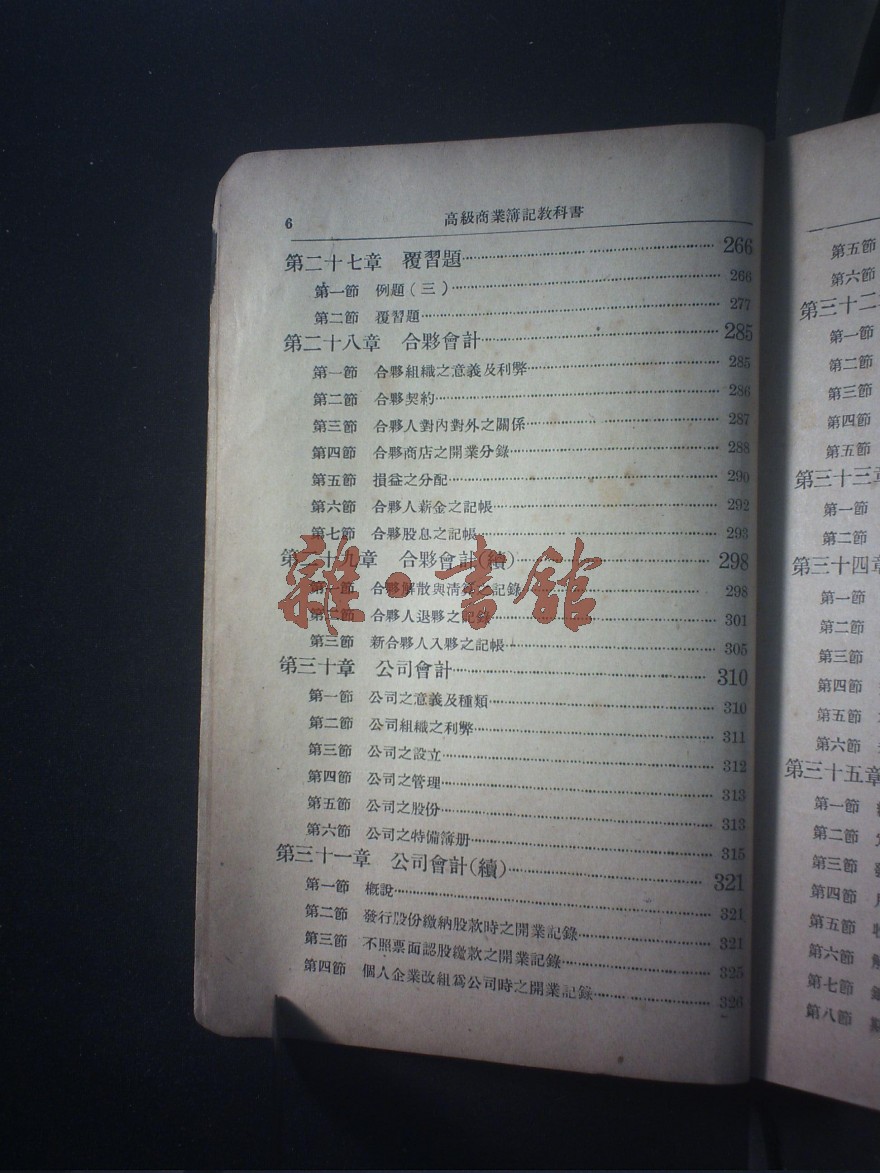 6 高級商業簿記教科書
第二十七章 覆習題 266
第一節 例題(三) 266
第二節 覆習題 277
第二十八章 合夥會計 285
第一節 合夥組織之意義及利弊 285
第二節 合夥契約 286
第三節 合夥人對內對外之關係 287
第四節 合夥商店之開業分錄 288
第五節 損益之分配 290
第六節 合夥人薪金之記帳 292
第七節 合夥股息之記帳 293
第二十九章 合夥會計(續) 298
第一節 合夥解散與清算之記錄 298
第二節 合夥人退夥之記錄 301
第三節 新合夥人入夥之記帳 305
第三十章 公司會計 310
第一節 公司之意義及種類 310
第二節 公司組織之利弊 311
第三節 公司之設立 312
第四節 公司之管理 313
第五節 公司之股份 313
第六節 公司之特備簿册 315
第三十一章 公司會計(續) 321
第一節 概說 321
第二節 發行股份繳納股款時之開業記錄 321
第三節 不照票面認股繳款之開業記錄 325
第四節 個人企業改組爲公司時之開業記錄 326
雜·書館
第五節
第六節
第三十二
第一節
第二節
第三節
第四節
第五節
第三十三章
第一節
第二節
第三十四章
第一節
第二節
第三節
第四節
第五節
第六節
第三十五章
第一節
第二節
第三節
第四節
第五節
第六節
第七節
第八節